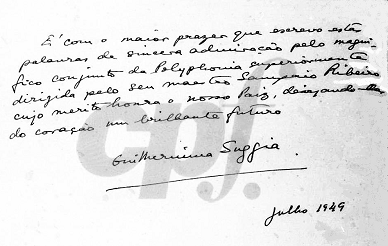 É com o maior prazer que escrevo estas
palavras de sincera admiração pelo magni-
fico conjunto da Polyphonia superiormente
dirigida pelo seu maestro Sampaio Ribeiro
cujo merito honra o nosso Paiz, desejando-lhes
do coração um brilhante futuro
Guilhermina Suggia
Julho 1949
cpj.